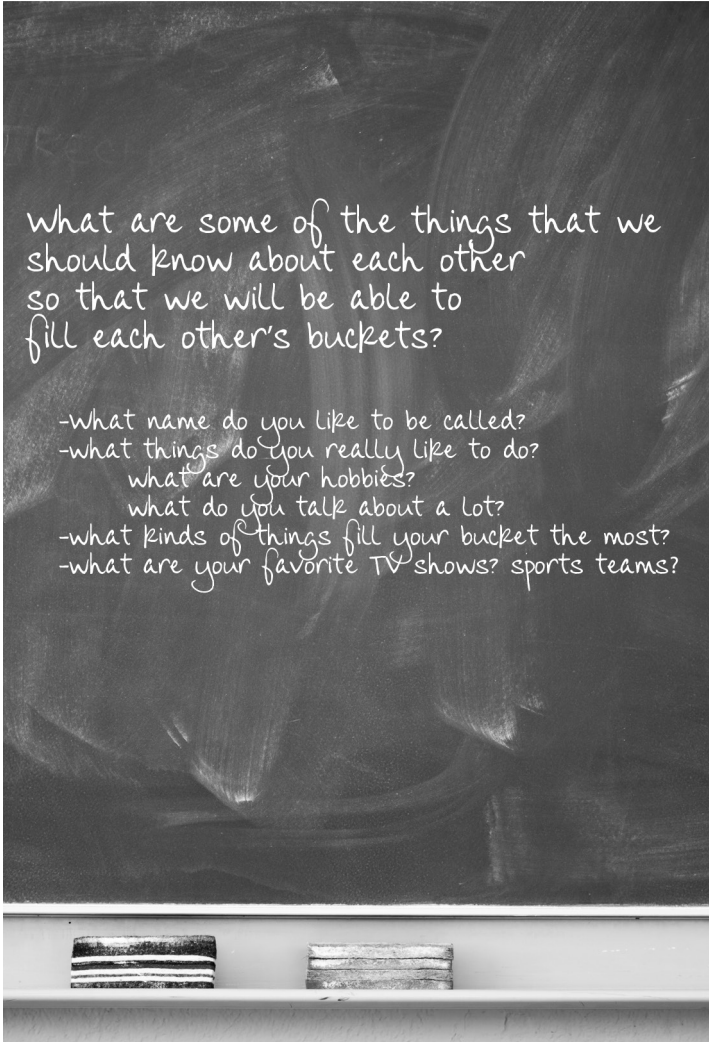 What are some of the things that we
should know about each other
so that we will be able to
fill each other's buckets?
-What name do you like to be called?
-what things do you really like to do?
what are your hobbies?
what do you talk about a lot?
-what kinds of things fill your bucket the most?
-what are your favorite TV shows? sports teams?